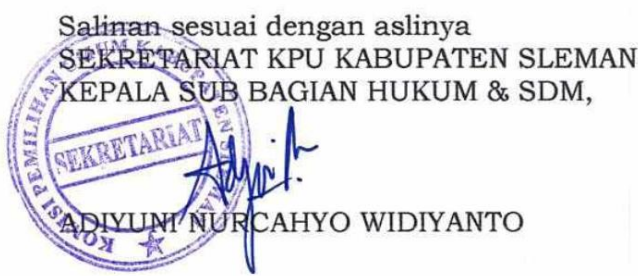 Salinan sesuai dengan aslinya
SEKRETARIAT KPU KABUPATEN SLEMAN
KEPALA SUB BAGIAN HUKUM & SDM,
KOMISI PEMILIHAN UMUM KABUPATEN SLEMAN
SEKRETARIAT
ADIYUNI NURCAHYO WIDIYANTO